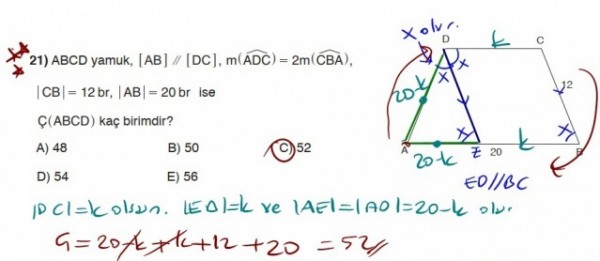 21) ABCD yamuk, [AB] // [DC], m(ADC) = 2m(CBA),
|CB| = 12 br, |AB| = 20 br ise
Ç(ABCD) kaç birimdir?
A) 48 B) 50 C) 52
D) 54 E) 56
x olur.
D k C
20-k x x 12
A x E 20 k x B
20-k
ED//BC
|DC|=k olsun. |EB|=k ve |AE|=|AD|=20-k olur.
Ç = 20-k+k+12+20 = 52//